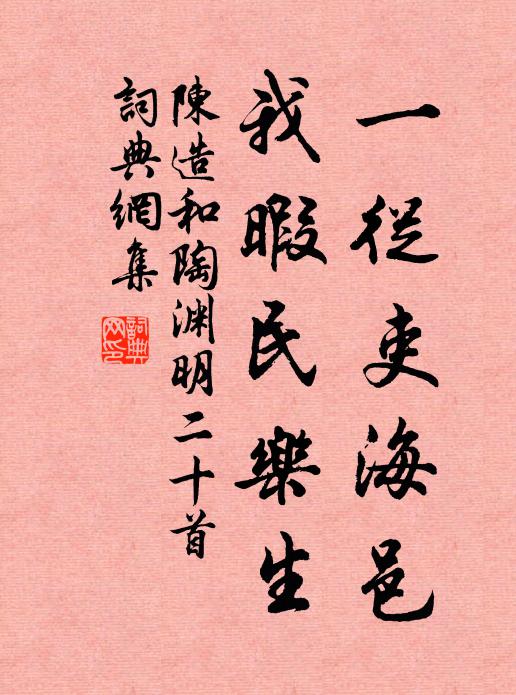 一從吏海邑
我暇民樂生
陳造和陶渊明二十首
詞典網集
詞典網印